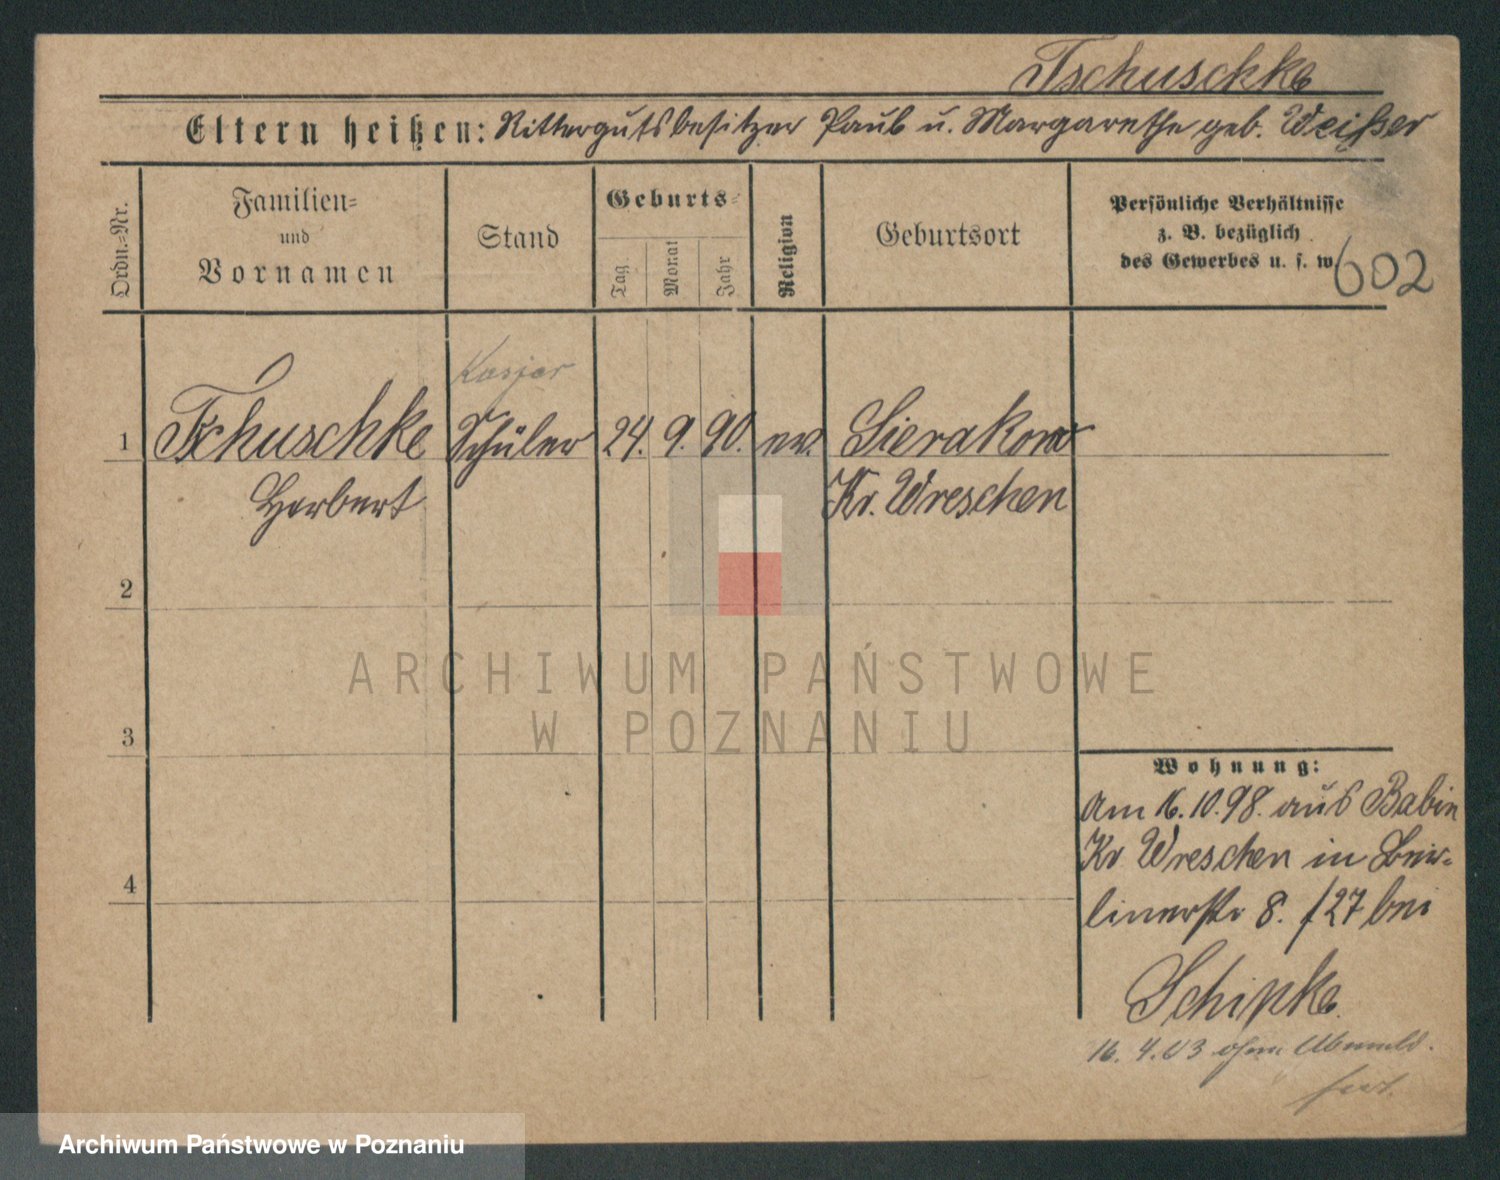 Tschuschke
Eltern heißen: Rittergutsbesitzer Paul u. Margarethe geb. Weißer
Ordn.-Nr.
Familien-
und
Vornamen
Stand
Geburts-
Tag
Monat
Jahr
Religion
Geburtsort
Persönliche Verhältnisse
z. B. bezüglich
des Gewerbes u. s. w.
602
1 Tschuschke Schüler 24. 9. 90. ev. Sierakowo
Herbert Kr. Wreschen
2
3
4
Wohnung:
Am 16.10.98. aus Babin
Kr Wreschen in Ber-
linerstr 8. /27 bei
Schipke.
16. 4. 03 ohne Abmeld.
fort.
ARCHIWUM PAŃSTWOWE
W POZNANIU
Archiwum Państwowe w Poznaniu